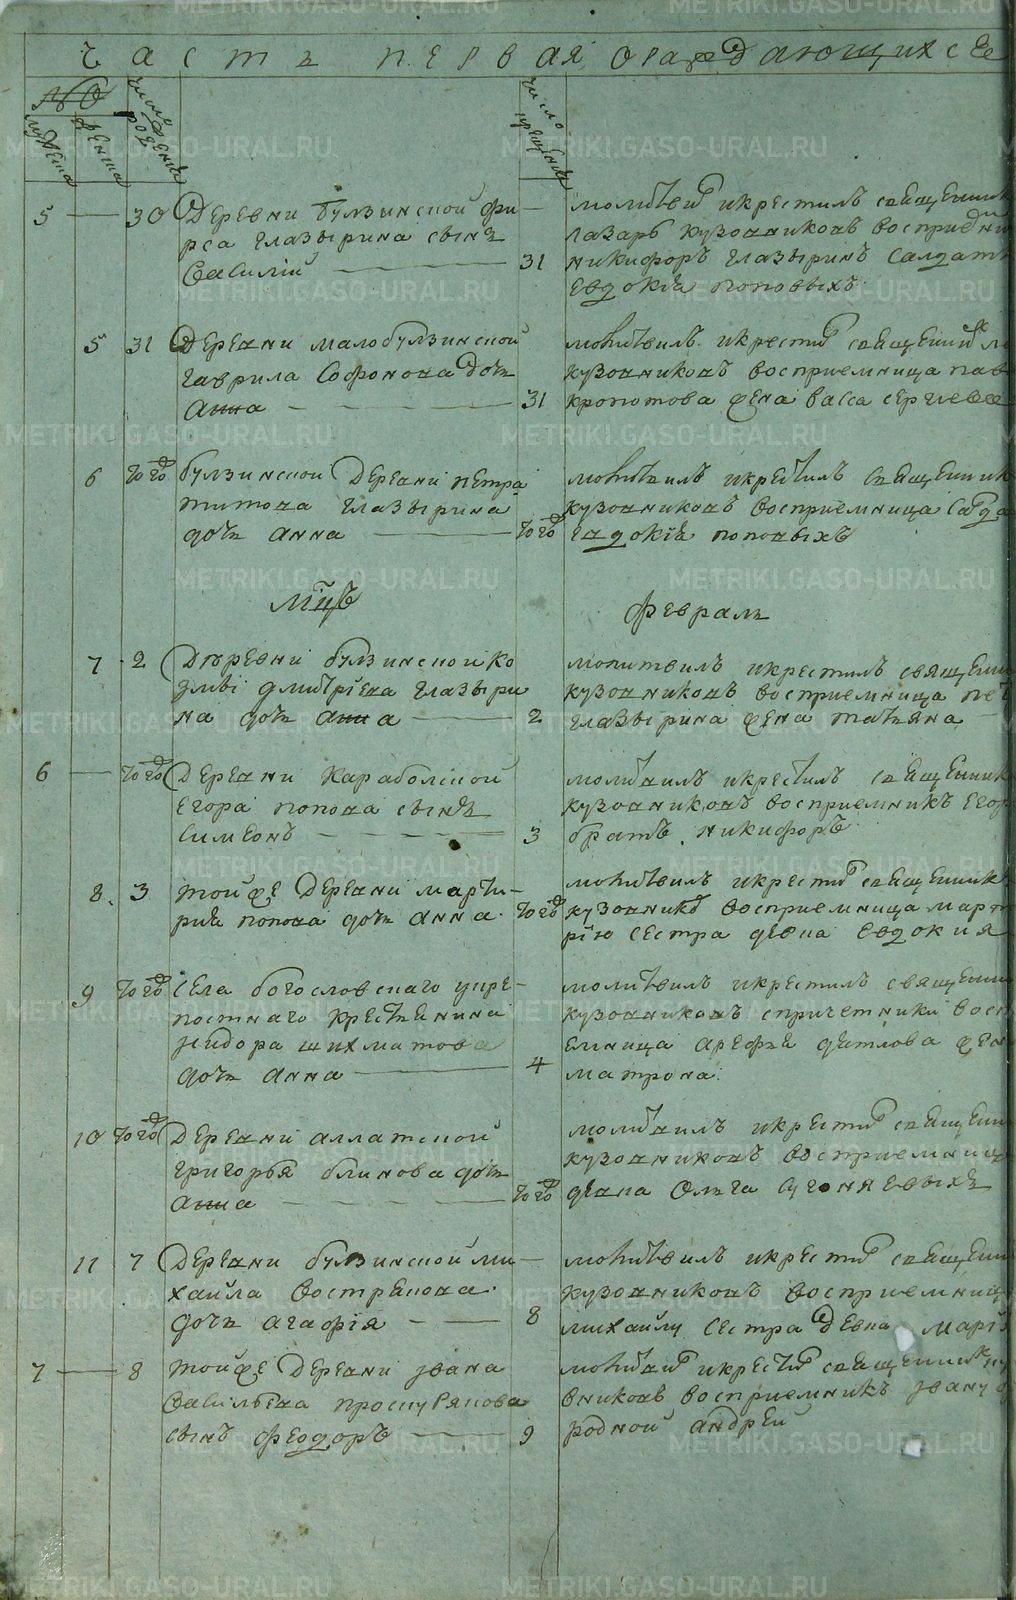 Часть первая, ораждающихсее
№
мужеска
женска
число рождений
число крещения
5 30 Деревни булзинской фи
рса глазырина сынъ
Василiй
31
молитвил икрестилъ священник
лазарь кузовниковъ восприемни
никифоръ глазыринъ салдат
Евдокiя поповыхъ
5 31 Деревни малобулзинской
гаврила Софонова дочь
анна
31
молитвилъ икрестил священник ла
кузовниковъ восприемница пав
кропотова жена васса сергеева
6 того булзинской деревни петра
титова глазырина
дочь анна
того
молитвилъ икрестилъ священник
кузовниковъ восприемница салда
Евдокiя поповыхъ
мцъ февраль
7 2 Дѣревни булзинской ко
змы дмитрiева глазыри
на дочь анна
2
молитвилъ икрестилъ священни
кузовниковъ восприемница пет
глазырина жена татьяна
6 того Деревни караболской
егора попова сынъ
симеонъ
3
молитвилъ икрестилъ священник
кузовниковъ восприемникъ егор
братъ никифоръ
8 3 тойже деревни марти-
рия попова дочь анна
того
молитвилъ икрестил священник
кузовникъ восприемница март
рiю сестра девка евдокия
9 того села богословскаго укре-
постнаго крестьянина
исидора шихматова
дочь анна
4
молитвилъ икрестилъ священни
кузовниковъ спричетники восп
емница арефья дѣтлова жен
матрона
10 того Деревни аллатской
григорья блинова дочь
анна
того
молитвилъ икрестил священни
кузовниковъ восприемниц
девка Ольга
11 7 Деревни булзинской ми
хайла вострякова
дочь агафiя
8
молитвилъ икрестил священни
кузовниковъ восприемниц
михайлу сестра девка марi
7 8 тойже деревни iвана
Васильева проскурякова
сынъ феодоръ
9
молитвил икрестил священник ку
вниковъ восприемникъ iвану
родной андрей
METRIKI.GASO-URAL.RU